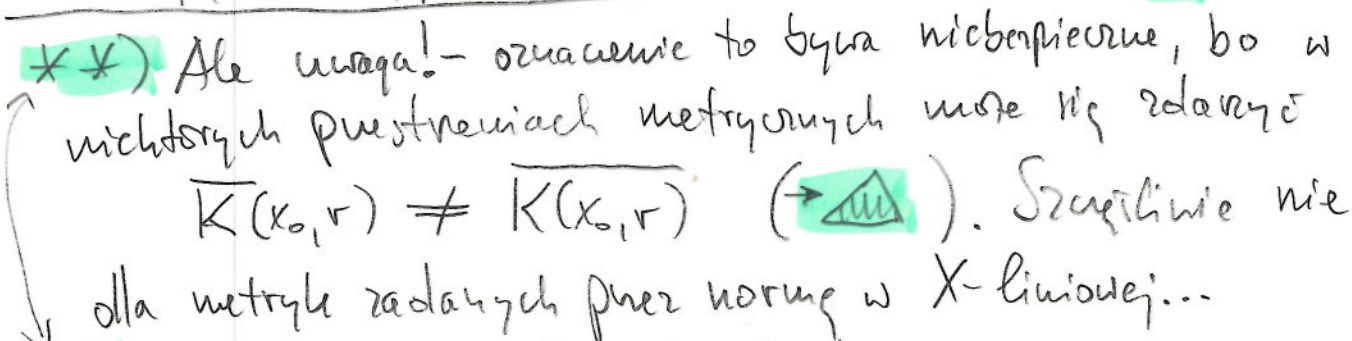 **) Ale uwaga! - oznaczenie to bywa niebezpieczne, bo w
niektórych przestrzeniach metrycznych może się zdarzyć
K̅(x₀,r) ≠ \overline{K(x₀,r)} (→△). Szczęśliwie nie
dla metryk zadanych przez normę w X-liniowej...